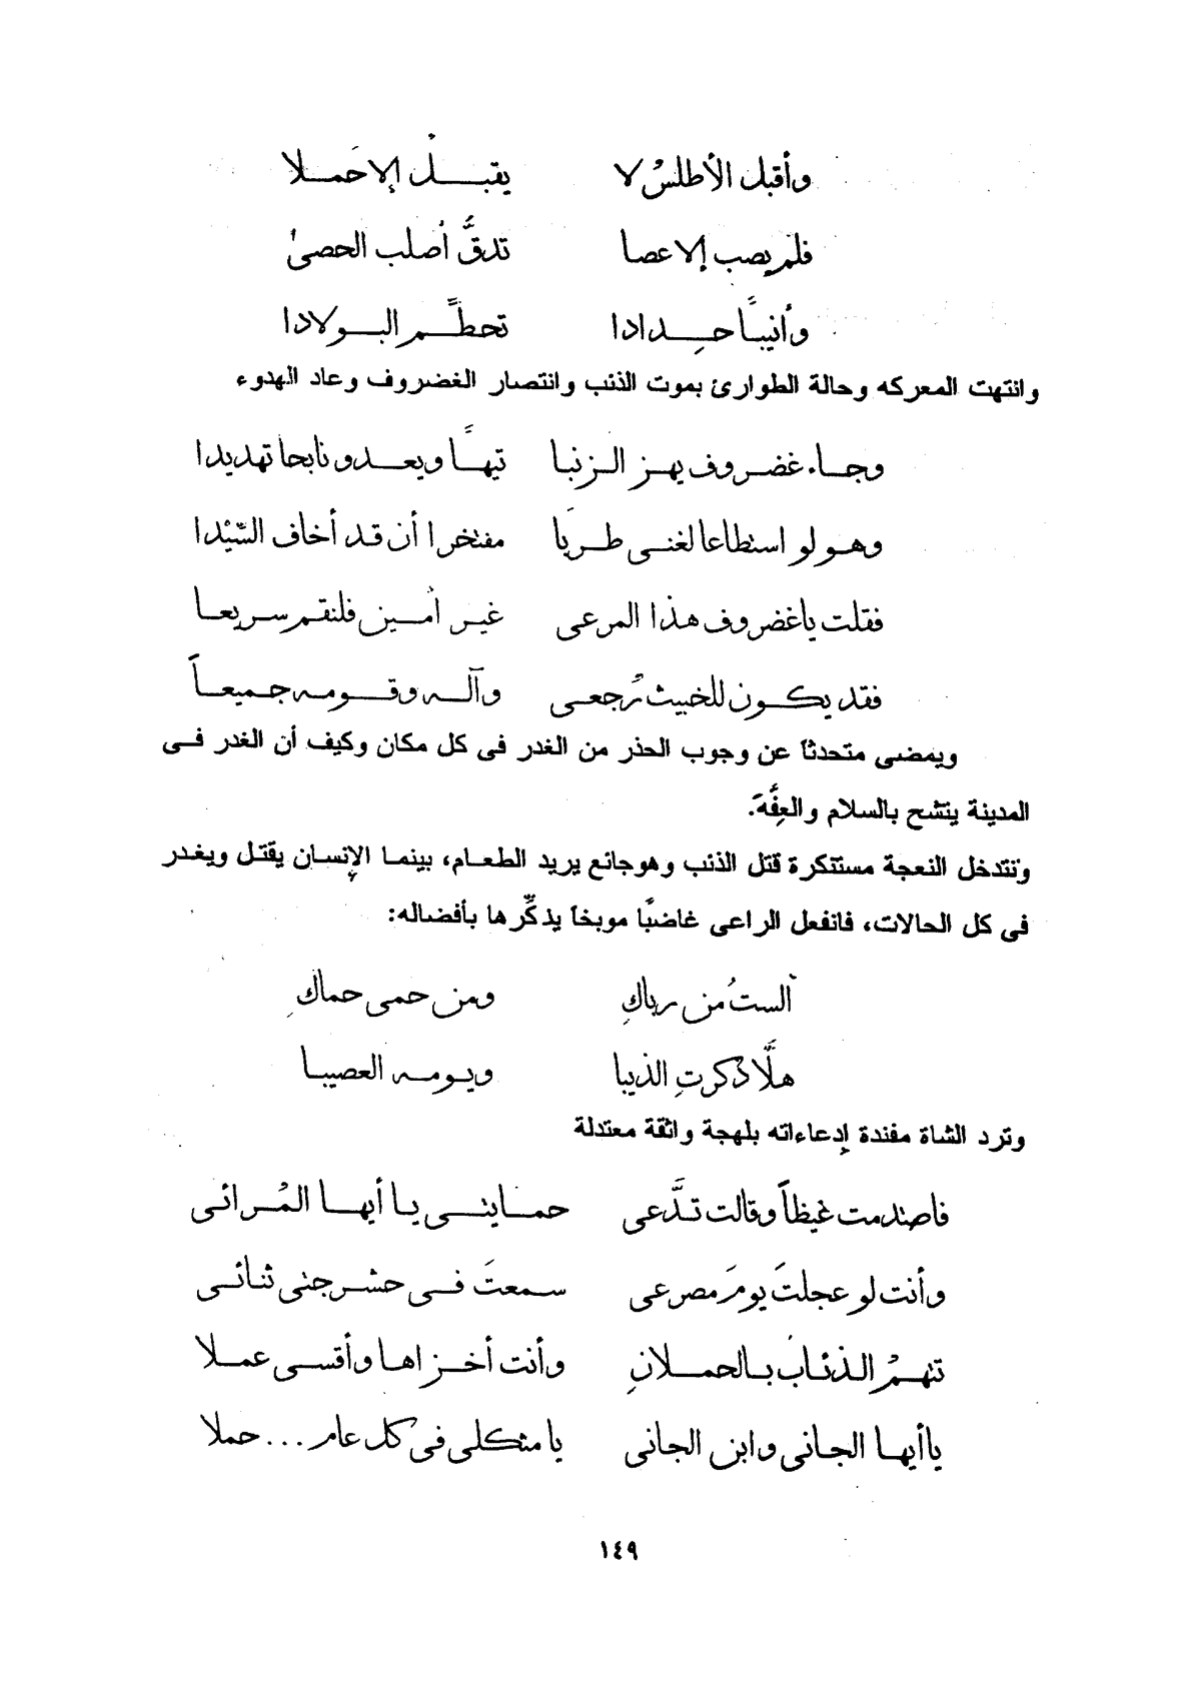 وأقبل الأطلسُ لا يقبـــلُ إلا حَمــلا
فلم يصب إلا عصا تدقُّ أصلب الحصىٰ
وأنيبًا حِــدادا تحطِّــم البــولادا
وانتهت المعركه وحالة الطوارئ بموت الذئب وانتصار الغضروف وعاد الهدوء
وجــاء غضـروف يهـز الـزنبا تيهًــا ويعــدو نابحا تهديدا
وهـو لو استطاعا لغنـى طـريا مفتخرا أن قـد أخاف السِّيْدا
فقلت ياغضروف هذا المرعى غيـر أمـين فلنقـم سـريعـا
فقد يكـون للخبيث رُجعـى وآلـه وقــومـه جـميعـاً
ويمضى متحدثاً عن وجوب الحذر من الغدر فى كل مكان وكيف أن الغدر فـى
المدينة يتشح بالسلام والعِفَّة.
وتتدخل النعجة مستنكرة قتل الذئب وهوجائع يريد الطعـام، بينمـا الإنسـان يقتـل ويغـدر
فى كل الحالات، فانفعل الراعى غاضبًا موبخاً يذكِّرها بأفضاله:
ألستُ من رباكِ ومن حمى حماكِ
هلَّا ذكرتِ الذيبا ويـومـه العصيبـا
وترد الشاة مفندة إدعاءاته بلهجة واثقة معتدلة
فاصندمت غيظاً وقالت تـدَّعى حمـايتـى يـا أيهـا المُـرائـى
وأنت لو عجلتَ يومَ مصرعى سـمعتَ فـى حشـرجتى ثنـائـى
تتهـمُ الـذئـابَ بـالحمـلانِ وأنت أخـزاهـا وأقسـى عمـلا
ياأيهـا الجـانى وابن الجانى يا مثكلى فى كل عام ... حملا
١٤٩